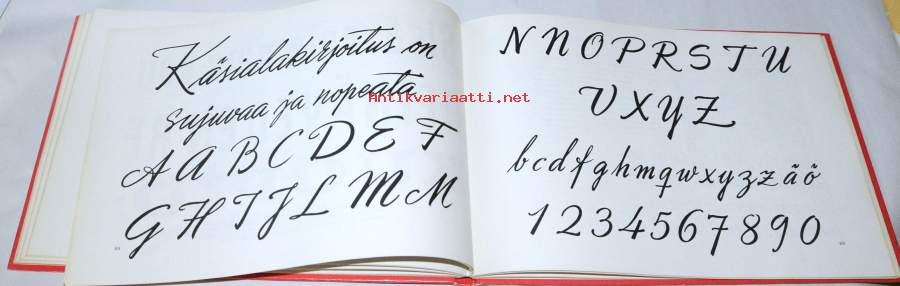 Käsialakirjoitus on
sujuvaa ja nopeata
Antikvariaatti.net
A A B C D E F
G H I J L M M
N N O P R S T U
V X Y Z
b c d f g h m q w x y z z ã õ
1 2 3 4 5 6 7 8 9 0